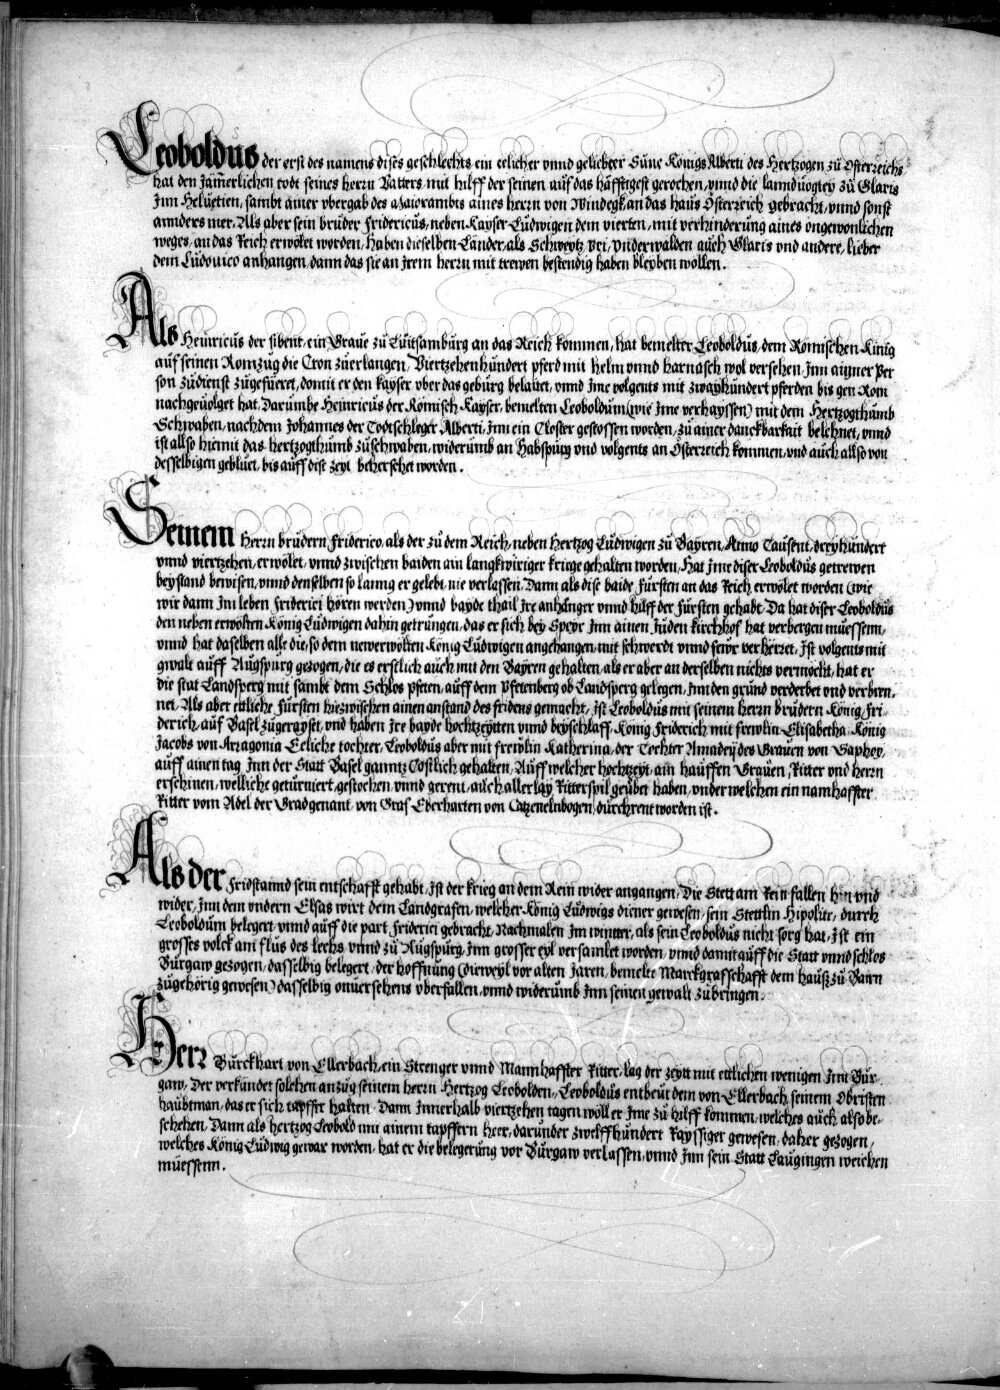 Leoboldus der erst des namens dises geschlechts ein eelicher vnnd geliebter Süne Königs Alberti des Hertzogen zů Osterreichs
hat den Jamerlichen todt seines herrn Vatters mit hilff der seinen auf das häfftigest gerochen, vnnd die lanndvogtey zů Glaris
Jnn Helvetien, sambt ainer vbergab des Maiorambts aines herrn von Windegk an das haus Österreich gebracht, vnnd sonst
annders mer. Als aber sein brůder Fridericus, neben Kayser Lůdwigen dem vierten, mit verhinderung aines ongewonlichen
weges, an das Reich erwölet worden, haben dieselben Länder, als Schweytz Vri, Vnderwalden aůch Glaris vnd andere, lieber
dem Lůdouico anhangen, dann das sie an Jrem herrn mit trewen bestendig haben bleyben wöllen.
Als Heinricůs der sibent, ein Graue zů Lützambůrg an das Reich kommen, hat bemelter Leoboldůs, dem Römischen König
auf seinen Romzůg die Cron zůerlangen, Viertzehenhůndert pferd mit helm vnnd harnasch wol versehen, Jnn aigner Per
son zůdienst zůgefüeret, domit er den kayser vber das gebürg belaitet, vnnd Jme volgents mit zwayhůndert pferden bis gen Rom
nachgeůolget hat, Darůmbe Heinricus der Römisch Kayser, bemelten Leoboldum (wie Jme verhayssen) mit dem Hertzogthůmb
Schwaben, nachdem Johannes der Todtschleger Alberti, Jnn ein Closter gestossen worden, zů ainer danckbarkait belehnet, vnnd
ist allso hiemit das hertzogthůmb zů Schwaben, widerůmb an Habspůrg vnd volgents an Österreich kommen, vnd aůch allso von
desselbigen geblüet, bis aůff dise zeyt beherschet worden.
Seinem Herrn brůdern Friderico, als der zů dem Reich, neben Hertzog Lůdwigen zů Bayren, Anno Taůsent, dreyhůndert
vnnd viertzehen, erwölet, vnnd zwischen baiden ain langkwiriger kriege gehalten worden, Hat Jme diser Leoboldůs getrewen
beystand bewisen, vnnd denselben so lanng er gelebt, nie verlassen, Dann als dise baide Fürsten an das Reich erwölet worden (wie
wir dann Jm leben Friderici hören werden) vnnd bayde thail Jre anhänger vnnd hilff der Fürsten gehabt, Da hat diser Leoboldůs
den neben erwölten König Lůdwigen dahin getrůngen, das er sich bey Speyr Jnn ainen Jůden kirchhof hat verbergen müessenn,
vnnd hat daselben alle die, so dem newerwölten König Lůdwigen angehangen, mit schwerdt vnnd fewr verhörret, Jst volgents mit
gwalt aůff Aůgspůrg gezogen, die es erstlich aůch mit den Bayren gehalten, als er aber an derselben nichts vermöcht, hat er
die stat Landsperg mit sambt dem Schlos pfeten, aůff dem Pfetenberg ob Landsperg gelegen, Jnn den grůnd verderbet vnd verbren-
net, Als aber etliche Fürsten hiezwischen ainen anstand des fridens gemacht, Jst Leoboldůs mit seinem herrn brůdern König Fri-
derich, auf Basel zůgerayset, vnd haben Jre bayde hochtzeytten vnnd beyschlaff, König Friderich mit frewlin Elisabetha, König
Jacobs von Arragonia Eeliche tochter, Leoboldůs aber mit frewlin Katherina, der Tochter Amadej des Graůen von Saphoy,
aůff ainen tag Jnn der Statt Basel ganntz Costlich gehalten, Aůff welcher hochtzeyt, ain haůffen Graůen, Ritter vnd herrn
erschinen, welliche getůrniert, gestochen, vnnd gerent, aůch allerlay Ritterspil geübet haben, vnder welchen ein namhaffter
Ritter vom Adel der Grad genant, von Graf Eberharten von Catzenelnbogen, důrchrent worden ist.
Als der Fridstannd sein entschafft gehabt, Jst der krieg an dem Rein wider angangen, Die Stett am Rein fallen hin vnd
wider, Jnn dem vndern Elsas wirt dem Landgrafen, welcher König Lůdwigs diener gewesen, sein Stettlin Hipolite, durch
Leoboldům belegert, vnnd aůff die part Friderici gebracht, Nachmalen Jm winter, als sein Leoboldůs nicht sorg hat, Jst ein
grosses volck am flůs des lechs, vnnd zů Aůgspůrg, Jnn grosser eyl versamlet worden, vnnd damit aůff die Statt vnnd schlos
Bůrgaw gezogen, dasselbig belegert, der hoffnůng (dieweyl vor alten Jaren, bemelte Marckgrafschafft dem haůß zů Bairn
zůgehörig gewesen) dasselbig onůersehens vberfallen, vnnd widerůmb Jnn seinen gewalt zůbringen.
Herr Bůrckhart von Ellerbach, ein Strenger vnnd Mannhaffter Ritter, lag der zeytt mit ettlichen wenigen Jnn Bůr-
gaw, Der verkündet solchen anzůg seinem herrn Hertzog Leobolden, Leoboldůs entbeůt dem von Ellerbach seinem Obristen
haůbtman, das er sich tapffer halten, Dann Jnnerhalb viertzehen tagen wöll er Jme zů hilff kommen, welches aůch also be-
schehen, Dann als hertzog Leobold mit ainem tapffern heer, darůnder zwelffhůndert Rayssiger gewesen, daher gezogen,
welches König Lůdwig gewar worden, hat er die belegerůng vor Bůrgaw verlassen, vnnd Jnn sein Statt Laůgingen weichen
müessenn.